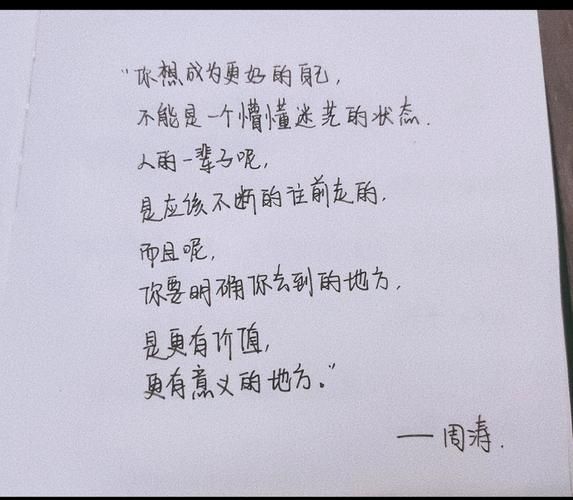 “你想成为更好的自己，
不能是一个懵懂迷茫的状态.
人的一辈子呢，
是应该不断的往前走的，
而且呢，
你要明确你去到的地方，
是更有价值，
更有意义的地方。”
——周涛.